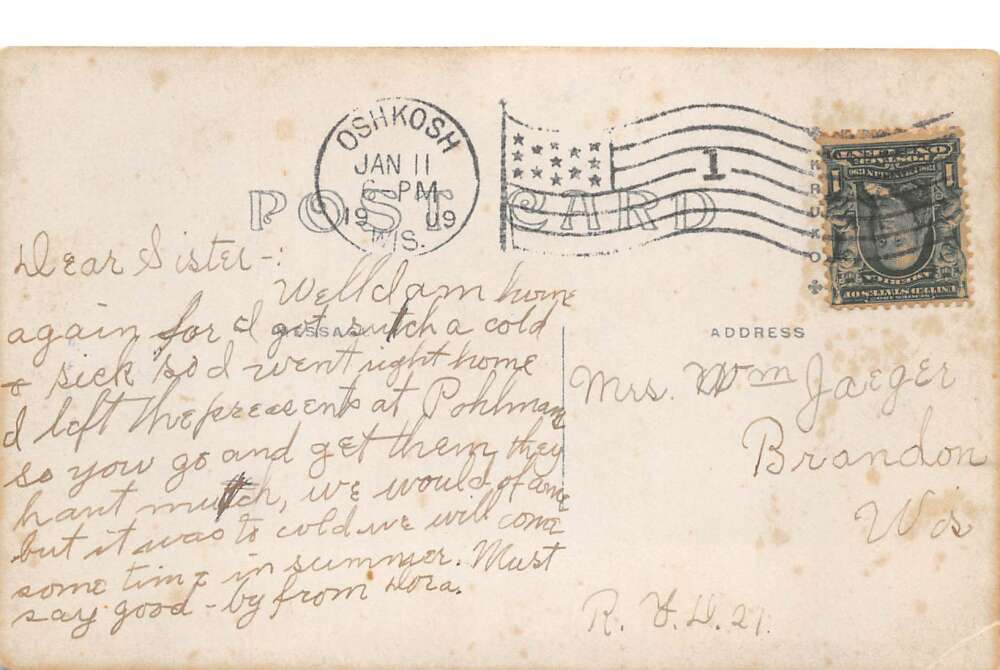 OSHKOSH
JAN 11
6-PM
1909
WIS.
1
POST CARD
MESSAGE
ADDRESS
Dear Sister-:
Well I am home
again for I got sutch a cold
& sick so I went right home
I left the presents at Pohlmans
so you go and get them, they
hant mutch, we would of come
but it was to cold we will come
some time in summer. Must
say good-by from Dora.
Mrs. Wm Jaeger
Brandon
Wis
R. F. D. 21.
POSTAGE
1
1
UNITED STATES OF
AMERICA